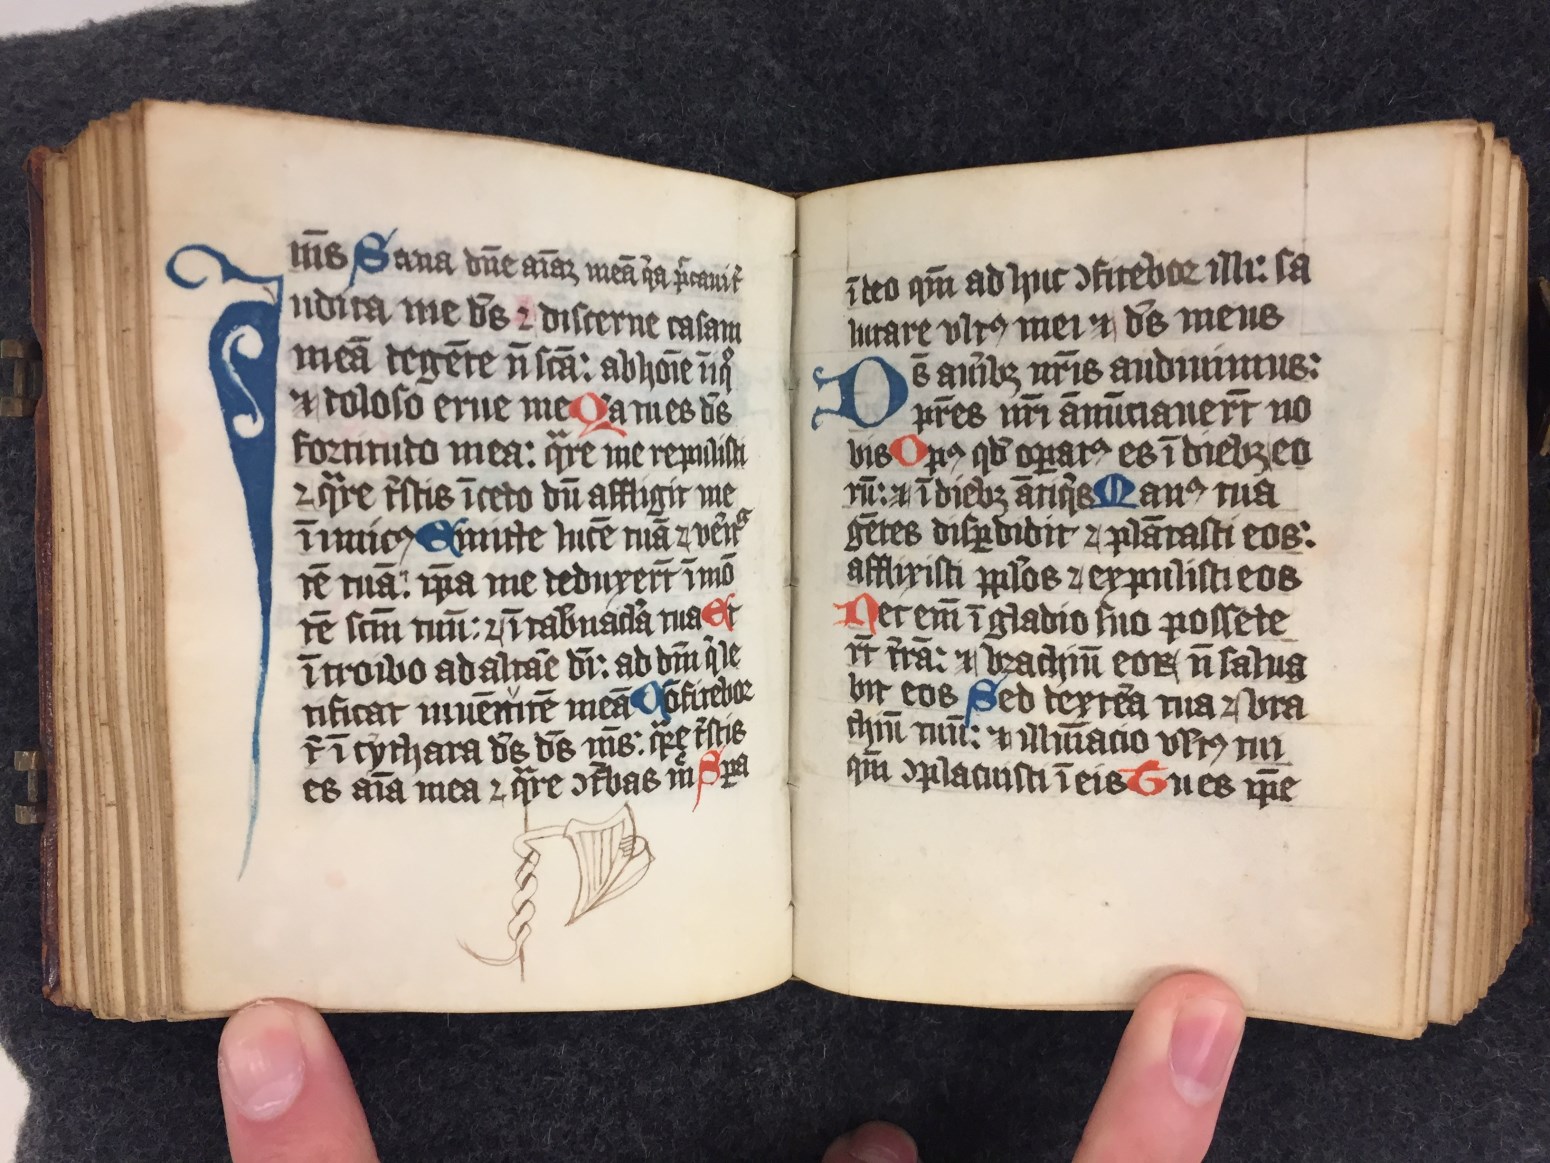 im̄s Sana dn̄e aīaꝫ meā q̄a p̄cauit̄
Iudica me ds̄ ⁊ discerne casam
meā degēte n̄ sc̄a: ab hoīe īiq̊
⁊ doloso erue me Qa tu es ds̄
fortitudo mea: q̄re me repulisti
⁊ q̄re t̄stis īcedo dū affligit me
īimicꝯ Emitte lucē tuā ⁊ v̄e͛t
tē tuā: ip̄a me deduxer̄t ī mō
tē sc̄m tuū: ⁊ ī tab̄nac̄la tua Et
ītroibo ad altāe dī: ad dm̄ q̄ le
tificat iuuētutē meā Cōfitebor
t̄ ī cythara ds̄ ds̄ ms̄: q̄re t̄stis
es aīa mea ⁊ q̄re ꝯt̄bas m̄ Spa
ī deo qm̄ ad huc ꝯfitebor illi: sa
lutare vltꝯ mei ⁊ ds̄ meus
Ds̄ aurībꝫ nr̄is audiuimus:
pr̄es nr̄i ānūciauer̄t no
bis Opꝯ qd̄ oꝑatꝯ es ī diebꝫ eo
rū: ⁊ ī diebꝫ ātiq̄s Manꝯ tua
gētes disꝑdidit ⁊ plātasti eos:
afflixisti pp̄los ⁊ expulisti eos
Nec em̄ ī gladio suo possede
rt̄ t̄rā: ⁊ brachiū eoꝝ n̄ salua
bit eos Sed dextēa tua ⁊ bra
chiū tuū: ⁊ illūīacio vltꝯ tui
qm̄ ꝯplacuisti ī eis Tu es ip̄e